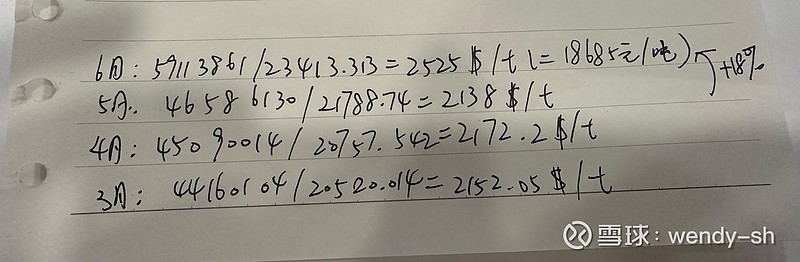 6月: 59113861/23413.313=2525$/t (=18685元/吨) +18%
5月: 46586130/21788.74=2138$/t
4月: 45090014/20757.542=2172.2$/t
3月: 44160104/20520.014=2152.05$/t
雪球: wendy-sh